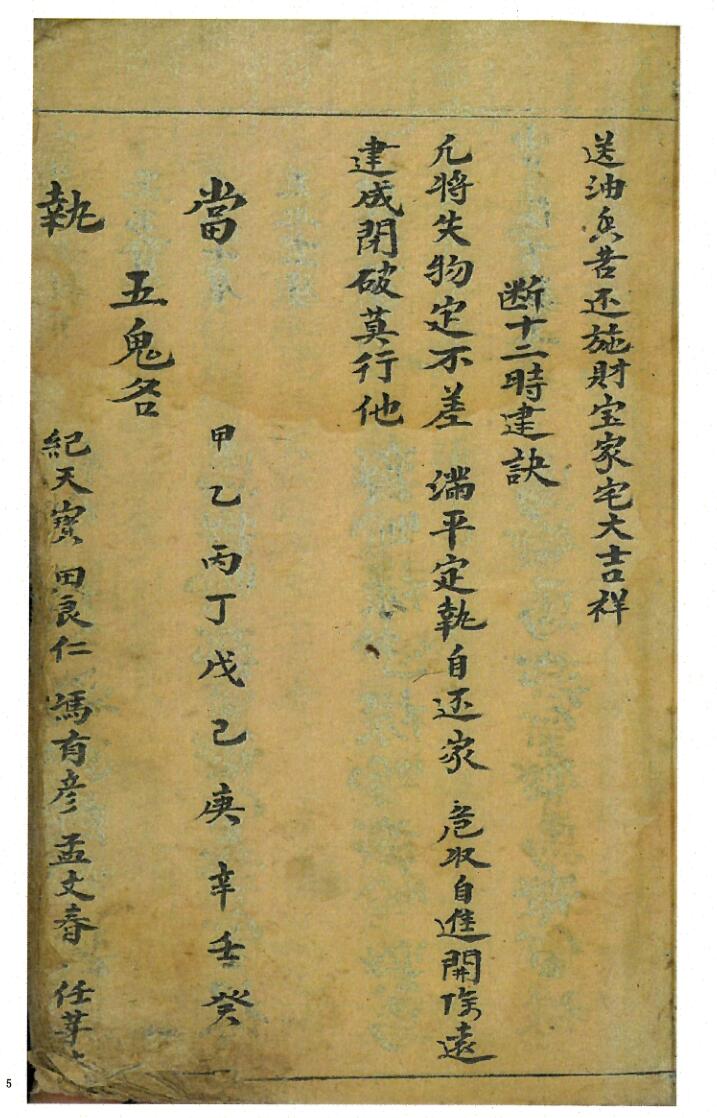 送油兵若还施財宝家宅大吉祥
断十二時建訣
凡將失物定不差 满平定執自还家 危収自進開除遠
建成閉破莫行他
當 甲乙丙丁戊己庚辛壬癸
五鬼名
執 紀天寳 田良仁 馮有彦 孟文春 任
5